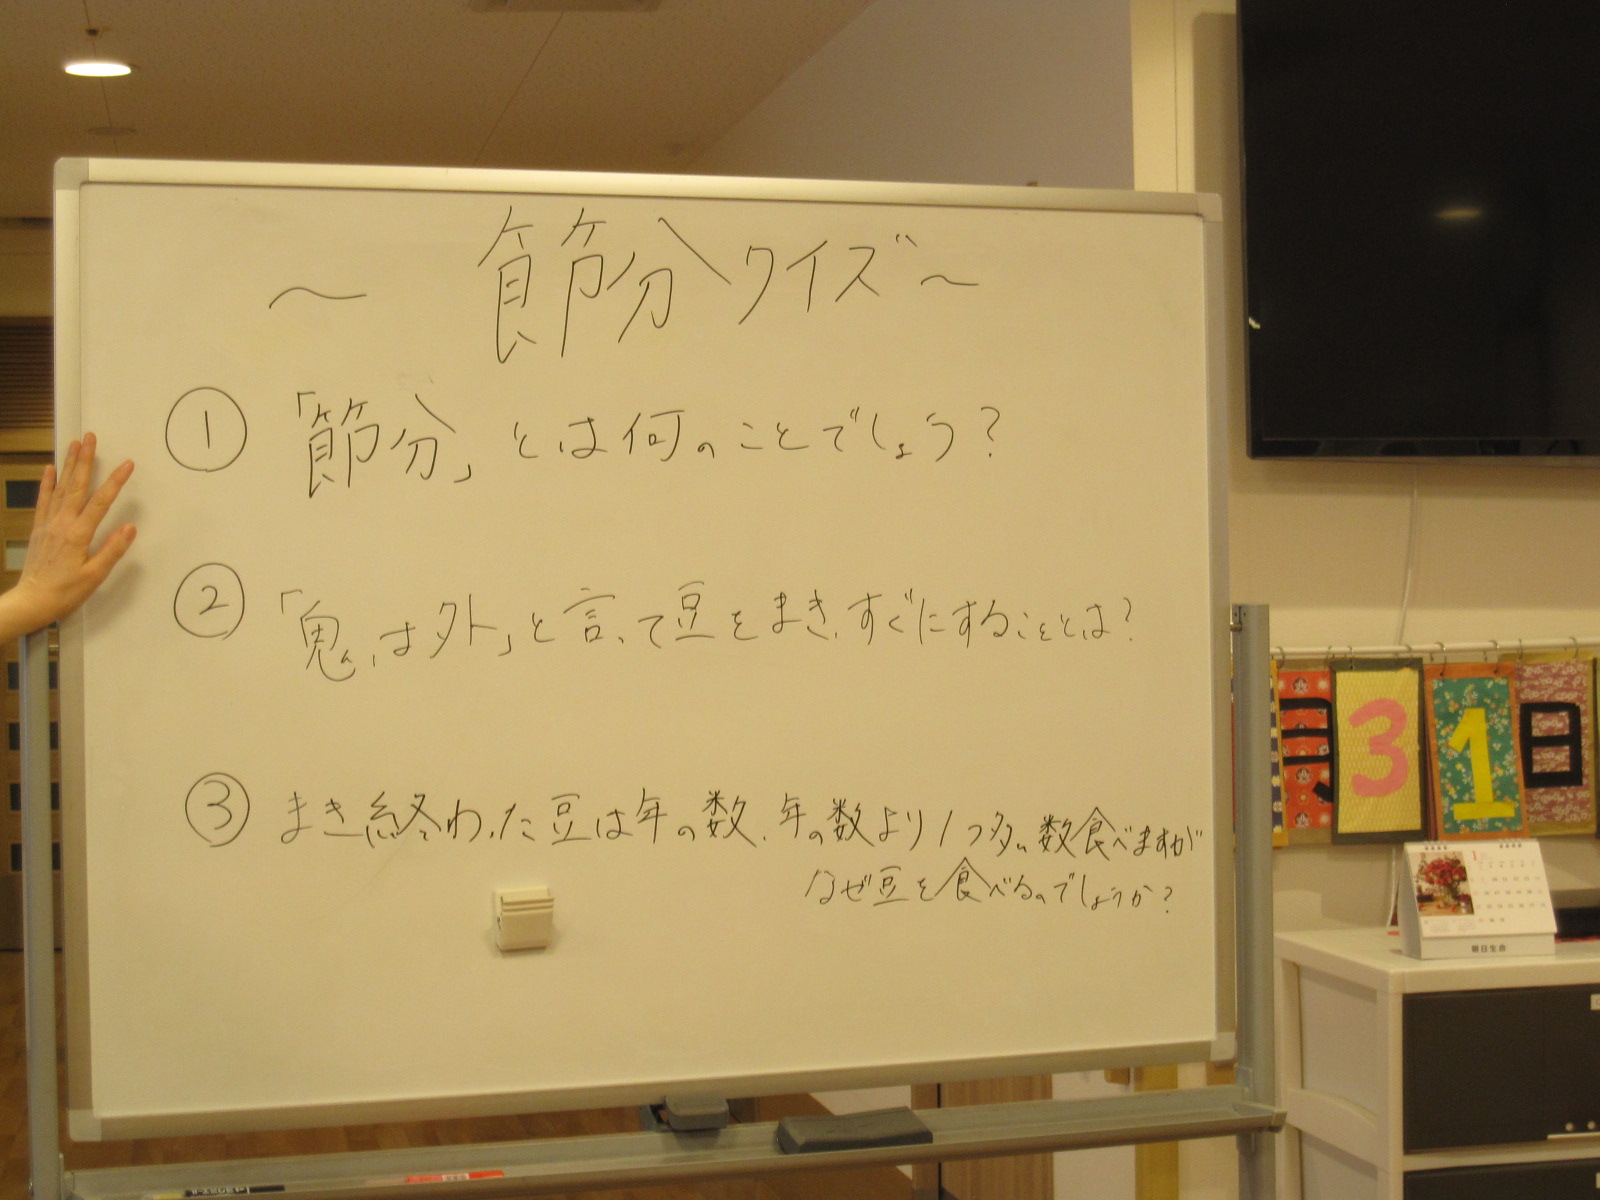 ～ 節分クイズ ～
① 「節分」とは何のことでしょう？
② 「鬼は外」と言って豆をまき、すぐにすることとは？
③ まき終わった豆は年の数、年の数より1つ多い数食べますが
なぜ豆を食べるのでしょうか？
月31日
明日生命